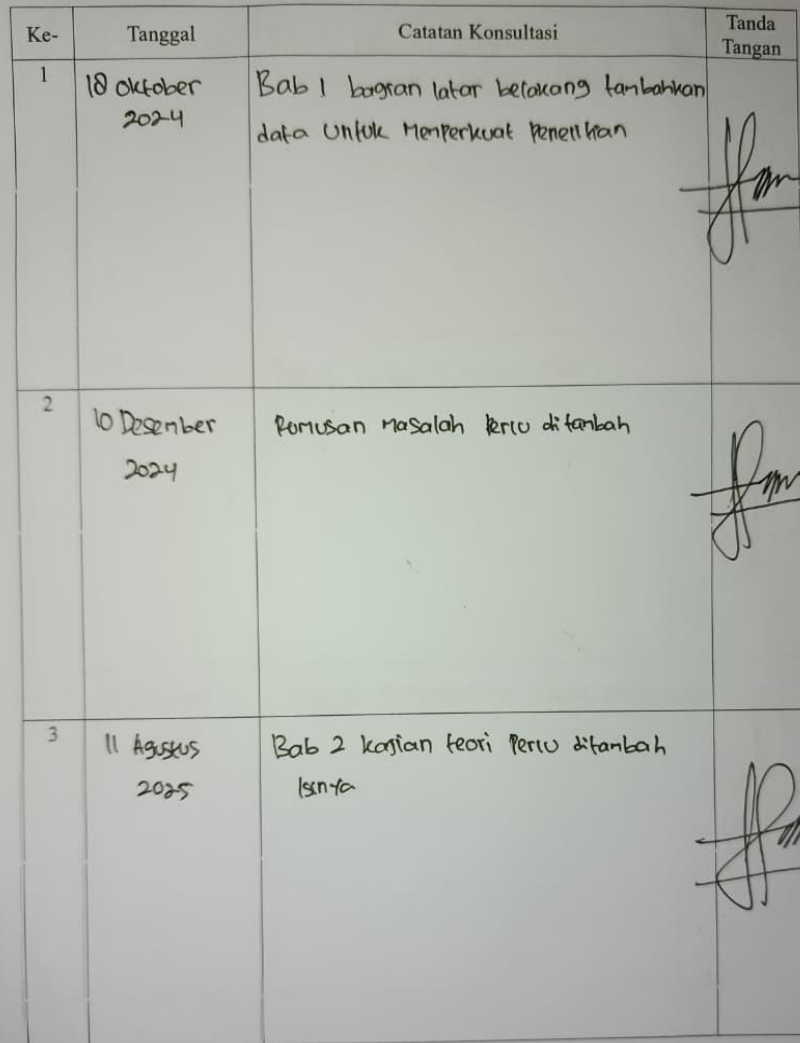 Ke- Tanggal Catatan Konsultasi Tanda Tangan
1 18 Oktober 2024
Bab 1 bagian latar belakang tambahkan
data untuk Memperkuat Penelitian
2 10 Desember 2024
Rumusan Masalah Perlu ditambah
3 11 Agustus 2025
Bab 2 kajian teori Perlu ditambah
Isinya